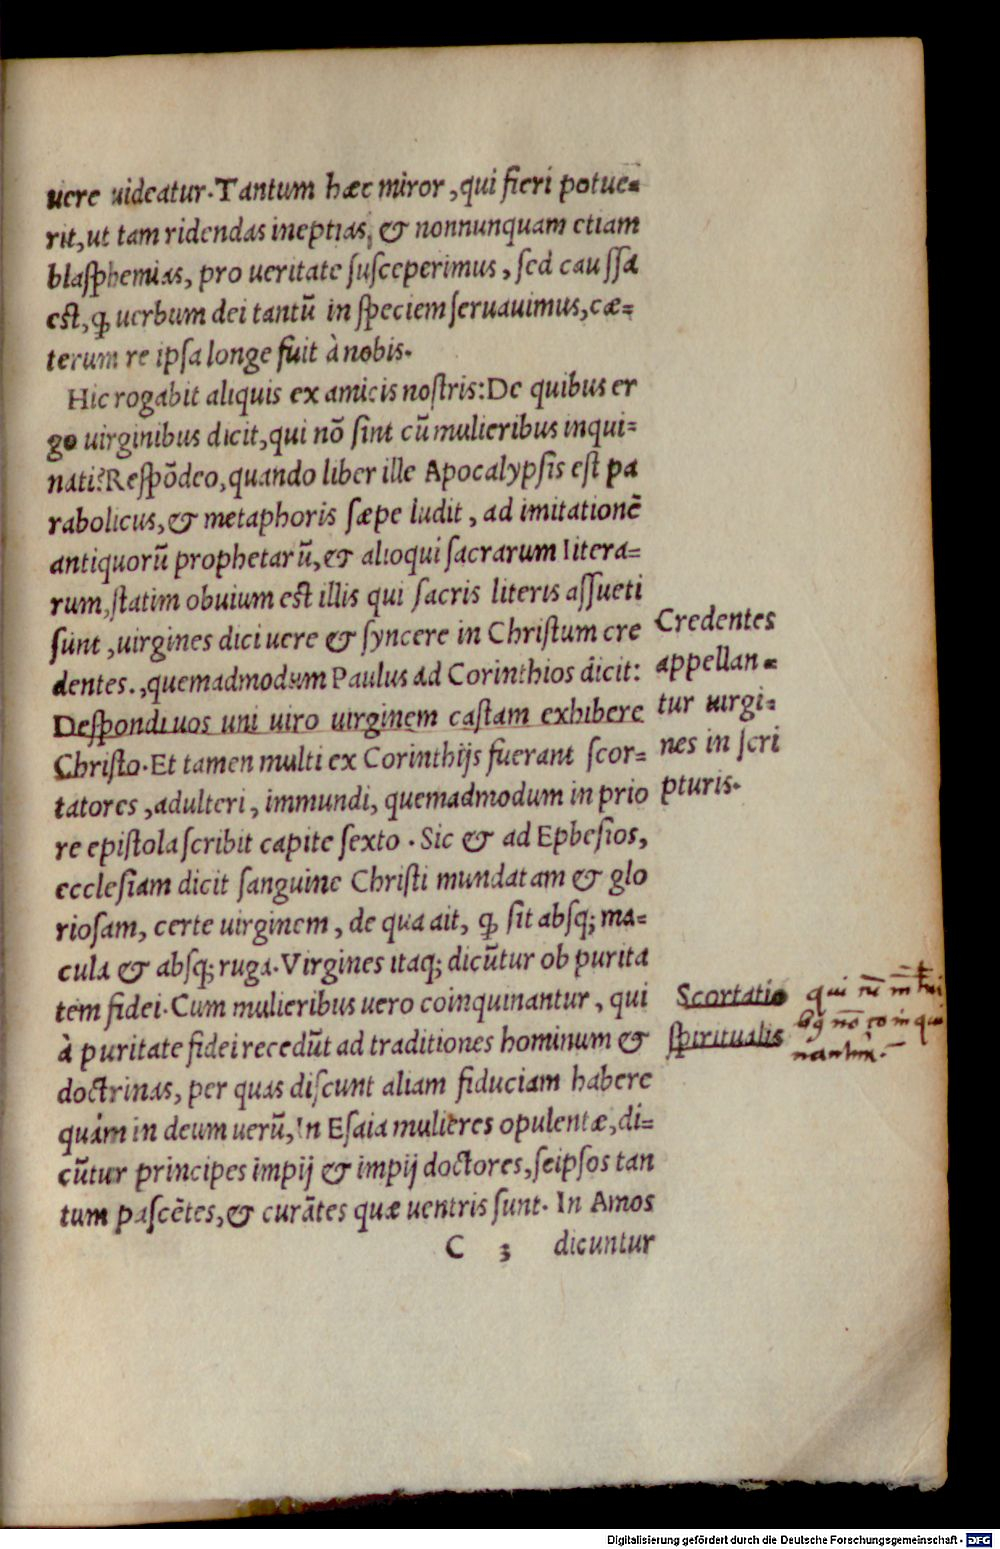 uere uideatur. Tantum hæc miror, qui fieri potue=
rit, ut tam ridendas ineptias, & nonnunquam etiam
blasphemias, pro ueritate susceperimus, sed caussa
est, ꝙ uerbum dei tantũ in speciem seruauimus, cæ=
terum re ipsa longe fuit à nobis.
Hic rogabit aliquis ex amicis nostris: De quibus er
go uirginibus dicit, qui nõ sint cũ mulieribus inqui=
nati? Respõdeo, quando liber ille Apocalypsis est pa
rabolicus, & metaphoris sæpe ludit, ad imitationẽ
antiquorũ prophetarũ, & alioqui sacrarum litera=
rum, statim obuium est illis qui sacris literis assueti
sunt, uirgines dici uere & syncere in Christum cre
dentes., quemadmodum Paulus ad Corinthios dicit:
Despondi uos uni uiro uirginem castam exhibere
Christo. Et tamen multi ex Corinthijs fuerant scor=
tatores, adulteri, immundi, quemadmodum in prio
re epistola scribit capite sexto. Sic & ad Ephesios,
ecclesiam dicit sanguine Christi mundatam & glo
riosam, certe uirginem, de qua ait, ꝙ sit absq; ma=
cula & absq; ruga. Virgines itaq; dicũtur ob purita
tem fidei. Cum mulieribus uero coinquinantur, qui
à puritate fidei recedũt ad traditiones hominum &
doctrinas, per quas discunt aliam fiduciam habere
quám in deum uerũ, In Esaia mulieres opulentæ, di=
cũtur principes impij & impij doctores, seipsos tan
tum pascẽtes, & curãtes quæ uentris sunt. In Amos
C 3 dicuntur
Credentes
appellan=
tur uirgi=
nes in scri
pturis.
Scortatio
spiritualis
qui